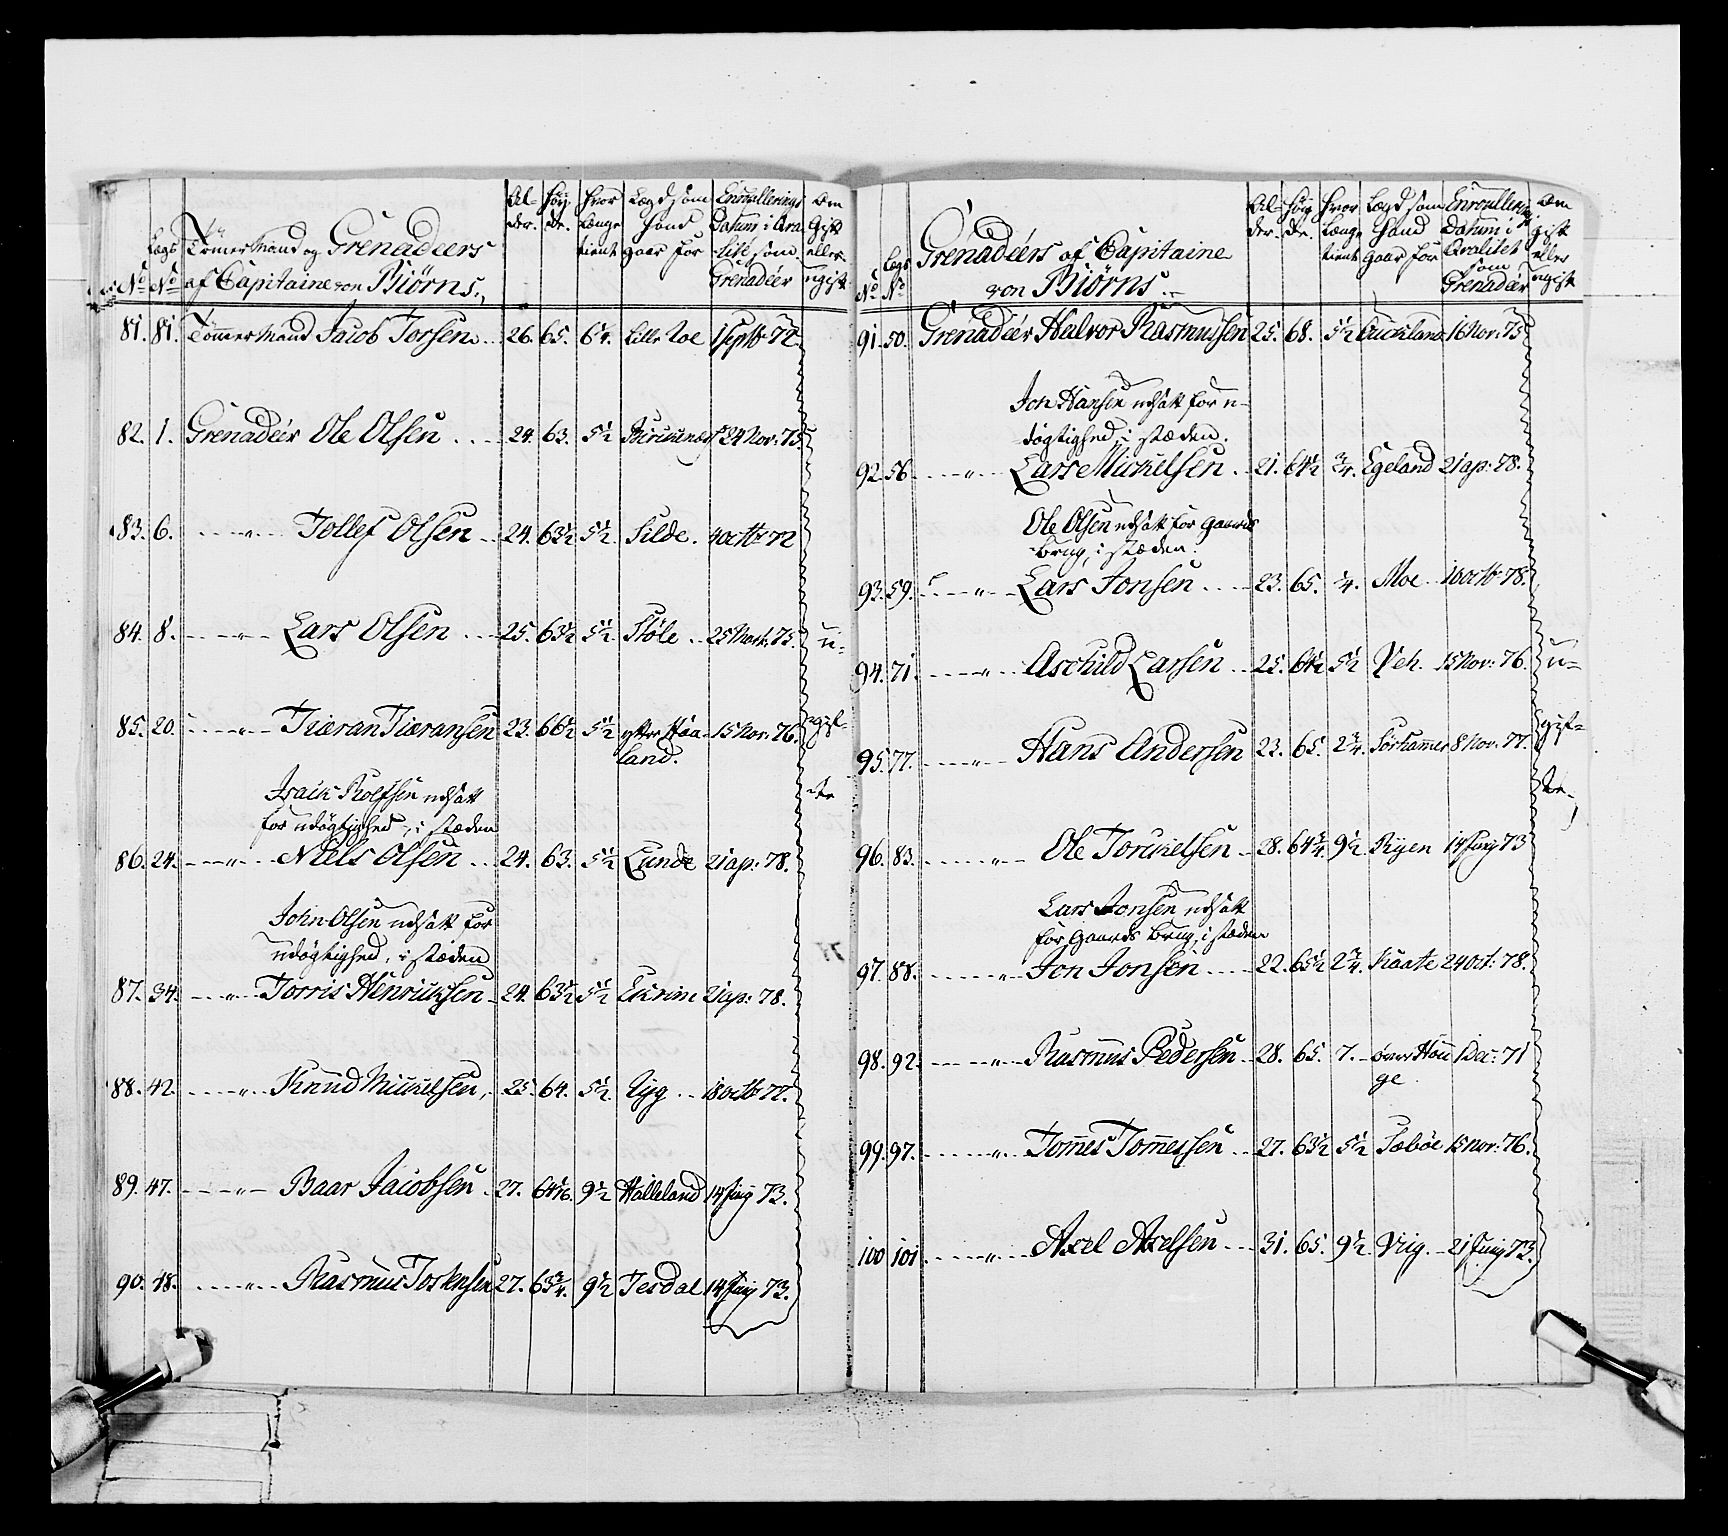 Tömermand og Grenadeers
af Capitaine von Biörns.
No
Lægs No
Al-
der.
Høy-
de.
Hvor
længe
tient
Lægd som
Hand
gaar for
Enroullerings
Datum i Qva-
litet som
Grenadeer
Om
Gift
eller
ugift
81. 81. Tömermand Jacob Torsen. 26. 65. 6¼. Lille Loe 1 Septb 72
82. 1. Grenadeer Ole Olsen 24. 63. 5½ 24 Nov: 75
83. 6. " Tollef Olsen 24. 63½ 5½ Silde. 4 octb 72
84. 8. " Lars Olsen 25. 63½ 5½ Støle 75. u-
85. 20. " Tiæran Tiæransen 23. 66½ 5½ ytter Haa- 15 Nov: 76. gif-
land.
te
Isaik Rolfsen udsatt
for udøgtighed, i stæden
86. 24. " Niels Olsen 24. 63. 5½ Lunde 21 ap: 78.
John Olsen udsatt for
udøgtighed, i stæden
87. 34. " Torris Henricksen 24. 63½ 5½ Ekrim 21 ap: 78.
88. 42. " Knud Mickelsen 25. 64. 5½ 18 octb 77.
89. 47. " Baar Jacobsen 27. 9½ Halleland 14 Junij 73.
90. 48. " Rasmus Torkensen 27. 63¾. 9½ Tesdal 14 Junij 73.
Grenadeers af Capitaine
von Biörns.
No
Lægs
No
Al-
der.
Høy-
de.
Hvor
længe
tient
Lægd som
Hand
gaar for
Enroullerings
Datum i
Qvalitet
som
Grenadeer
Om
gift
eller
ugift
91. 50. Grenadeer Halvor Rasmussen 25. 68. 5½ Auckland 16 Nov: 75
Jon Hansen udsatt for u-
døgtighed, i stæden.
92. 56. " Lars Mickelsen 21. 64½ ¾. Egeland 21 ap: 78.
Ole Olsen udsatt for Gaards
brug, i stæden.
93. 59. " Lars Jonsen 23. 65. ¼. Moe 16 octb 78.
94. 71. " Aschild Larsen 25. 64½ 5½ Veh. 15 Nov: 76. u-
95. 77. " Hans Andersen 23. 65. 2¼. Sørhammer 8 Nov: 77. gif-
te.
96. 83. " Ole Torkelsen 28. 64¾. 9½ Ryen 14 Junij 73
Lars Jonsen udsatt
for Gaards brug, i stæden
97. 88. " Jon Jonsen 22. 65½ 2¾. Kaate 24 oct: 78.
98. 92. " Rasmus Pedersen 28. 65. 7. over Hau- 1 Dec: 71
ge
99. 97. " Tomes Tomessen 27. 63½ 5½ Sæbøe 15 nov: 76.
100 101 " Axel Axelsen 31. 65. 9½ Vig. 21 Junij 73.